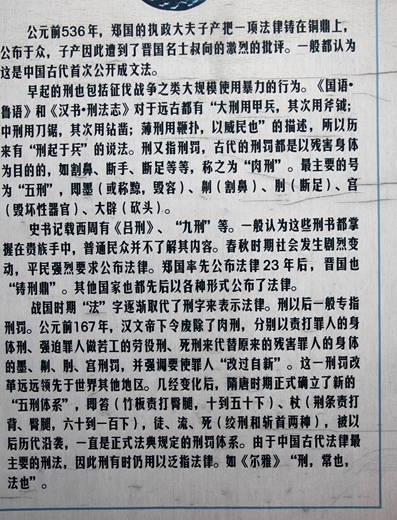 公元前536年，郑国的执政大夫子产把一项法律铸在铜鼎上，
公布于众，子产因此遭到了晋国名士叔向的激烈的批评。一般都认为
这是中国古代首次公开成文法。
早起的刑也包括征伐战争之类大规模使用暴力的行为。《国语·
鲁语》和《汉书·刑法志》对于远古都有“大刑用甲兵，其次用斧钺；
中刑用刀锯，其次用钻凿；薄刑用鞭扑，以威民也”的描述，所以历
来有“刑起于兵”的说法。刑又指刑罚，古代的刑罚都是以残害身体
为目的的，如割鼻、断手、断足等等，称之为“肉刑”。最主要的号
为“五刑”，即墨（或称黥，毁容）、劓（割鼻）、刖（断足）、宫
（毁坏性器官）、大辟（砍头）。
史书记载西周有《吕刑》、“九刑”等。一般认为这些刑书都掌
握在贵族手中，普通民众并不了解其内容。春秋时期社会发生剧烈变
动，平民强烈要求公布法律。郑国率先公布法律23年后，晋国也
“铸刑鼎”。其他国家也都先后以各种形式公布了法律。
战国时期“法”字逐渐取代了刑字来表示法律。刑以后一般专指
刑罚。公元前167年，汉文帝下令废除了肉刑，分别以责打罪人的身
体刑、强迫罪人做若干工的劳役刑、死刑来代替原来的残害罪人的身体
的墨、劓、刖、宫刑罚，并强调要使罪人“改过自新”。这一刑罚改
革远远领先于世界其他地区。几经变化后，隋唐时期正式确立了新的
“五刑体系”，即笞（竹板责打臀腿，十到五十下）、杖（荆条责打
背、臀腿，六十到一百下），徒、流、死（绞刑和斩首两种），被以
后历代沿袭，一直是正式法典规定的刑罚体系。由于中国古代法律最
主要的刑法，因此刑有时仍用以泛指法律。如《尔雅》“刑，常也，
法也”。